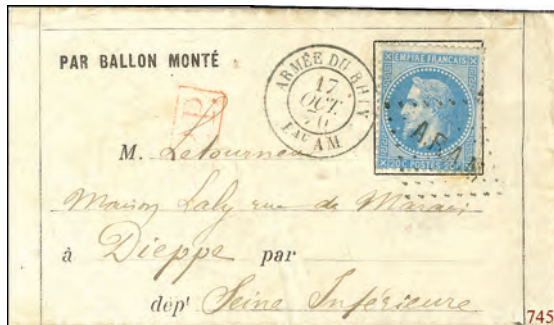 PAR BALLON MONTÉ
ARMÉE DU RHIN
17
OCT.
70
Iᵃᵘ AM
EMPIRE FRANÇAIS
20c POSTES 20c
M. Letourneau
Maison Laly rue de Marais
à Dieppe par
dépᵗ Seine Inférieure
745